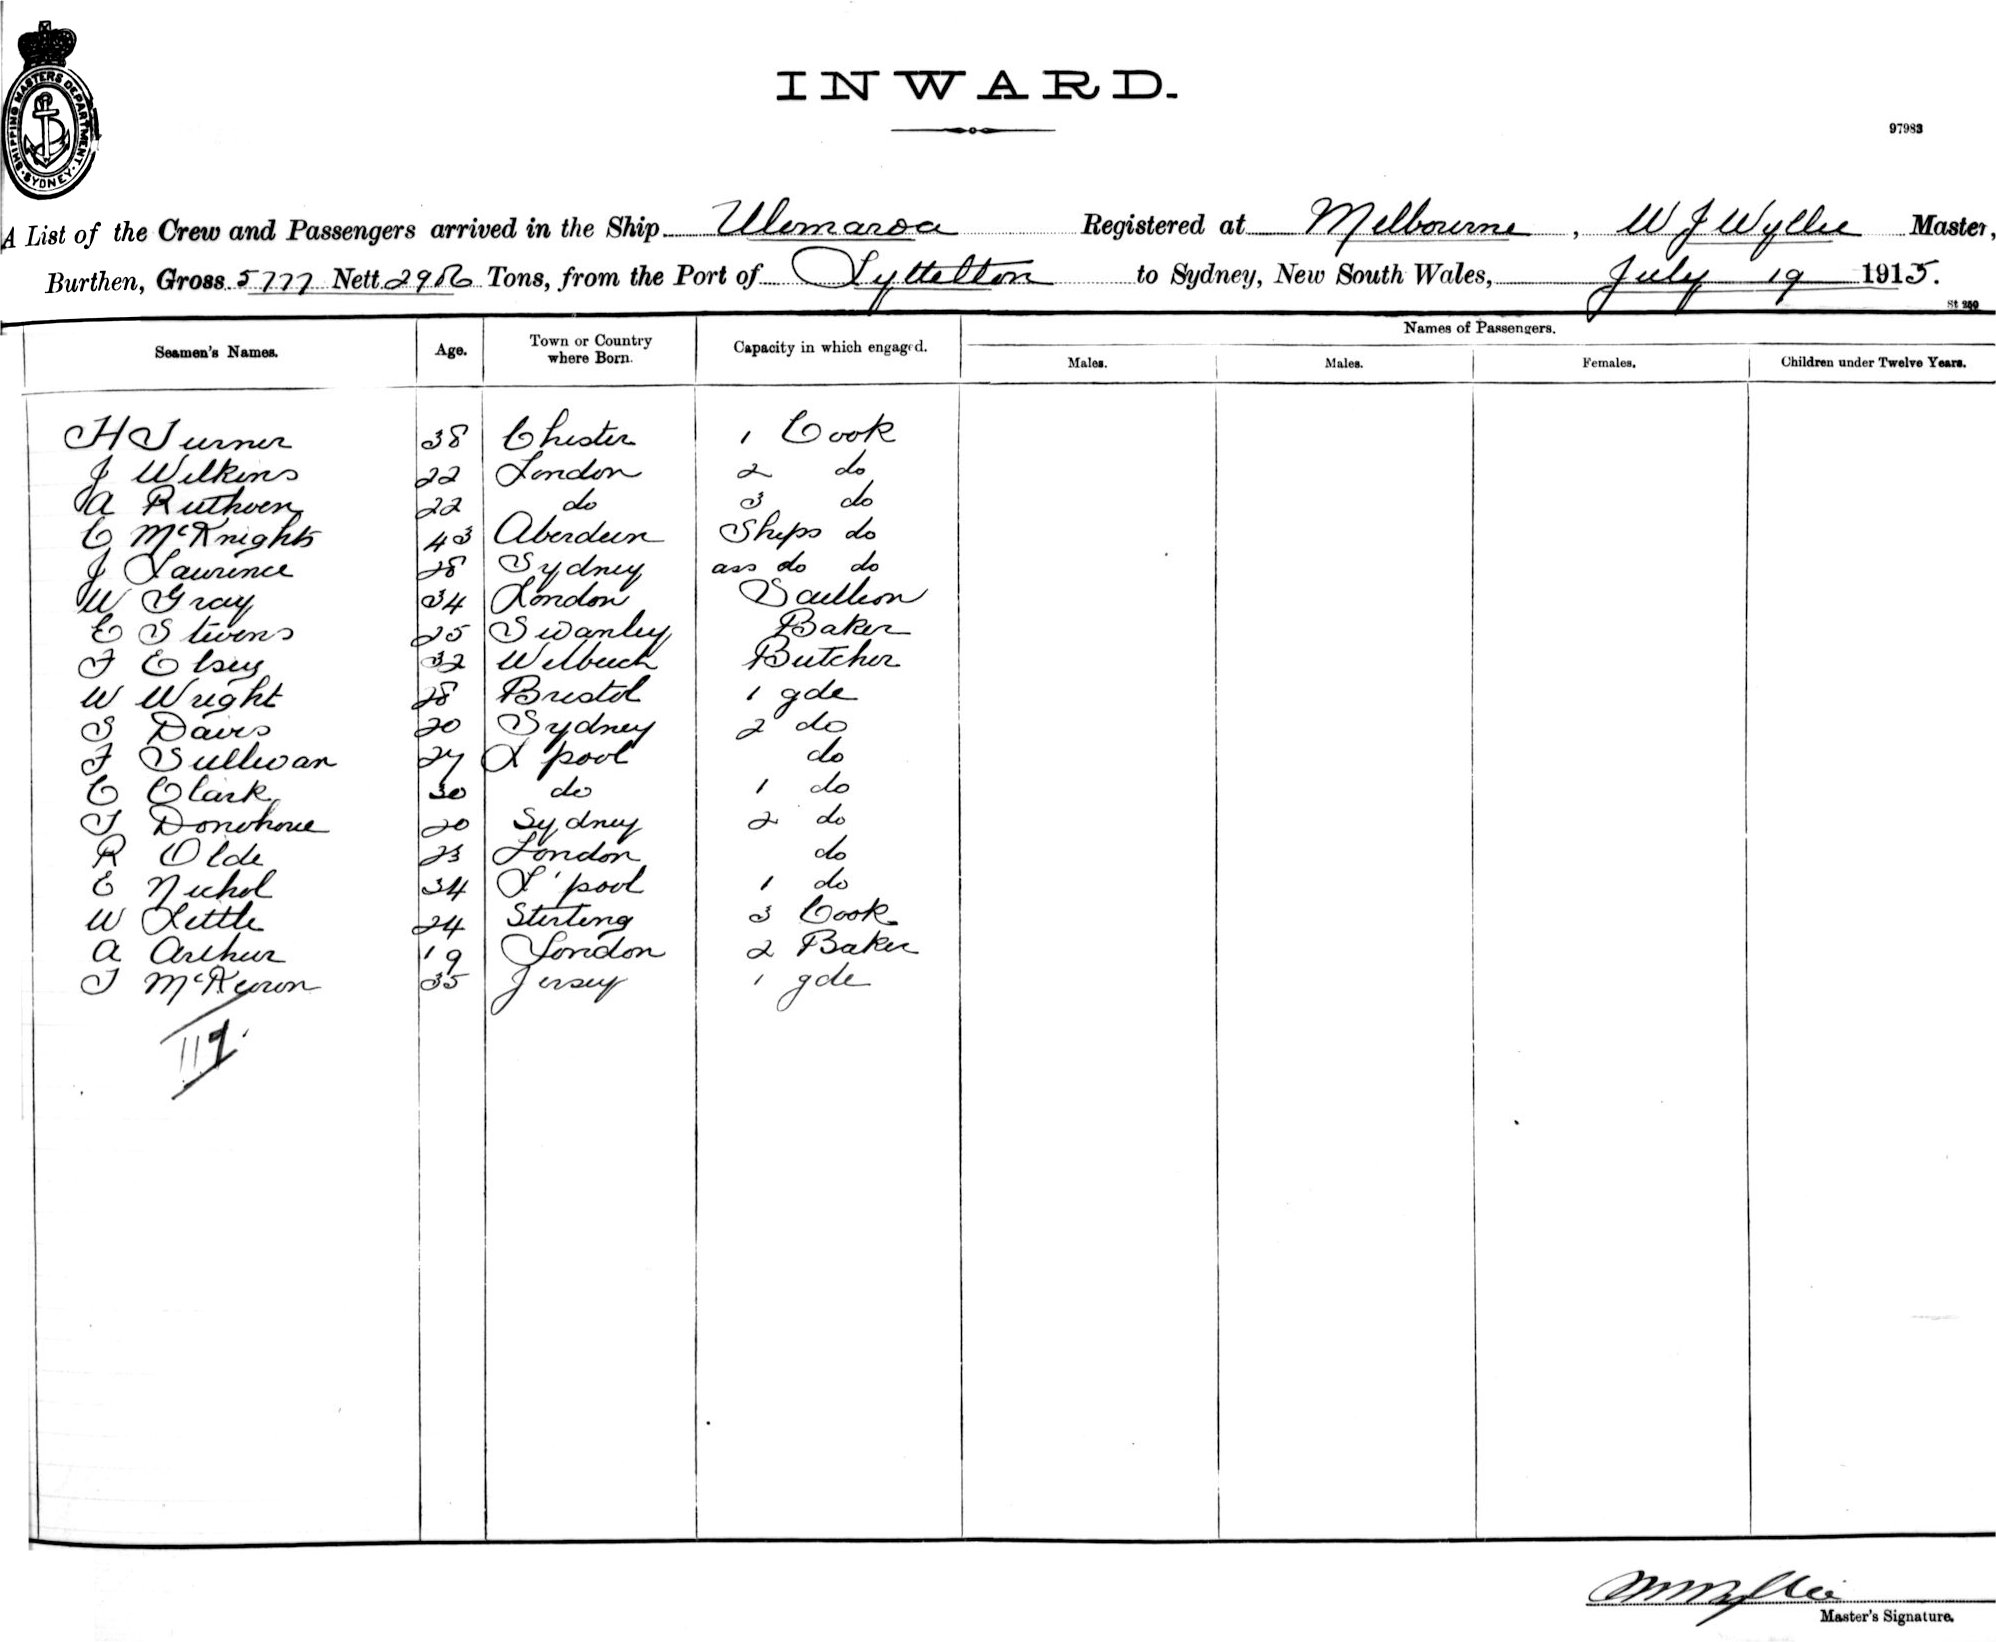 SHIPPING MASTERS DEPARTMENT. SYDNEY.
INWARD.
97983
A List of the Crew and Passengers arrived in the Ship Ulimaroa Registered at Melbourne, W J Wyllie Master,
Burthen, Gross 5777 Nett 2986 Tons, from the Port of Lyttelton to Sydney, New South Wales, July 19 1915.
St 250
Names of Passengers.
Seamen's Names. Age. Town or Country where Born. Capacity in which engaged. Males. Males. Females. Children under Twelve Years.
H Turner 38 Chester 1 Cook
J Wilkins 22 London 2 do
A Ruthven 22 do 3 do
C McKnights 43 Aberdeen Ships do
J Laurence 28 Sydney ass do do
W Gray 34 London Scullion
E Stivens 25 Swanley Baker
F Elsey 32 Welbech Butcher
W Wright 28 Bristol 1 gde
S Davis 20 Sydney 2 do
F Sullivan 27 L'pool do
C Clark 30 do 1 do
T Donohoue 20 Sydney 2 do
R Olde 23 London do
E Nichol 34 L'pool 1 do
W Little 24 Stirling 3 Cook
A Arthur 19 London 2 Baker
T McKeown 35 Jersey 1 gde
119.
Master's Signature.